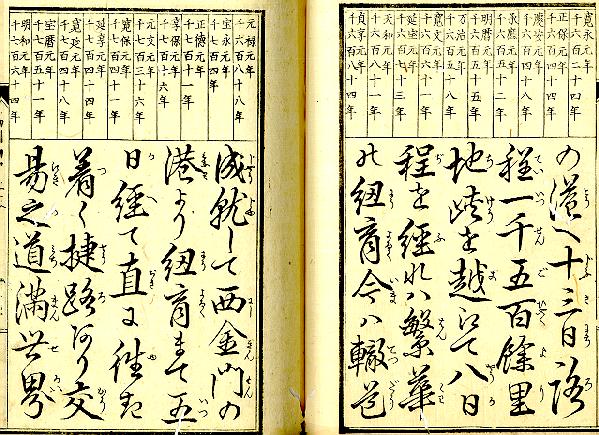 寛永元年
千六百二十四年
正保元年
千六百四十四年
慶安元年
千六百四十八年
承應元年
千六百五十二年
明暦元年
千六百五十五年
万治元年
千六百五十八年
寛文元年
千六百六十一年
延宝元年
千六百七十三年
天和元年
千六百八十一年
貞享元年
千六百八十四年
の港へ十三日路
程一千五百餘里
地峡を越て八日
程を経れハ繁華
の紐育今ハ轍道
元禄元年
千六百八十八年
宝永元年
千七百四年
正徳元年
千七百十一年
享保元年
千七百十六年
元文元年
千七百三十六年
寛保元年
千七百四十一年
延享元年
千七百四十四年
寛延元年
千七百四十八年
宝暦元年
千七百五十一年
明和元年
千七百六十四年
成就して西金門の
港より紐育まて五
日経て直に往き
着く捷路あり交
易之道満世界